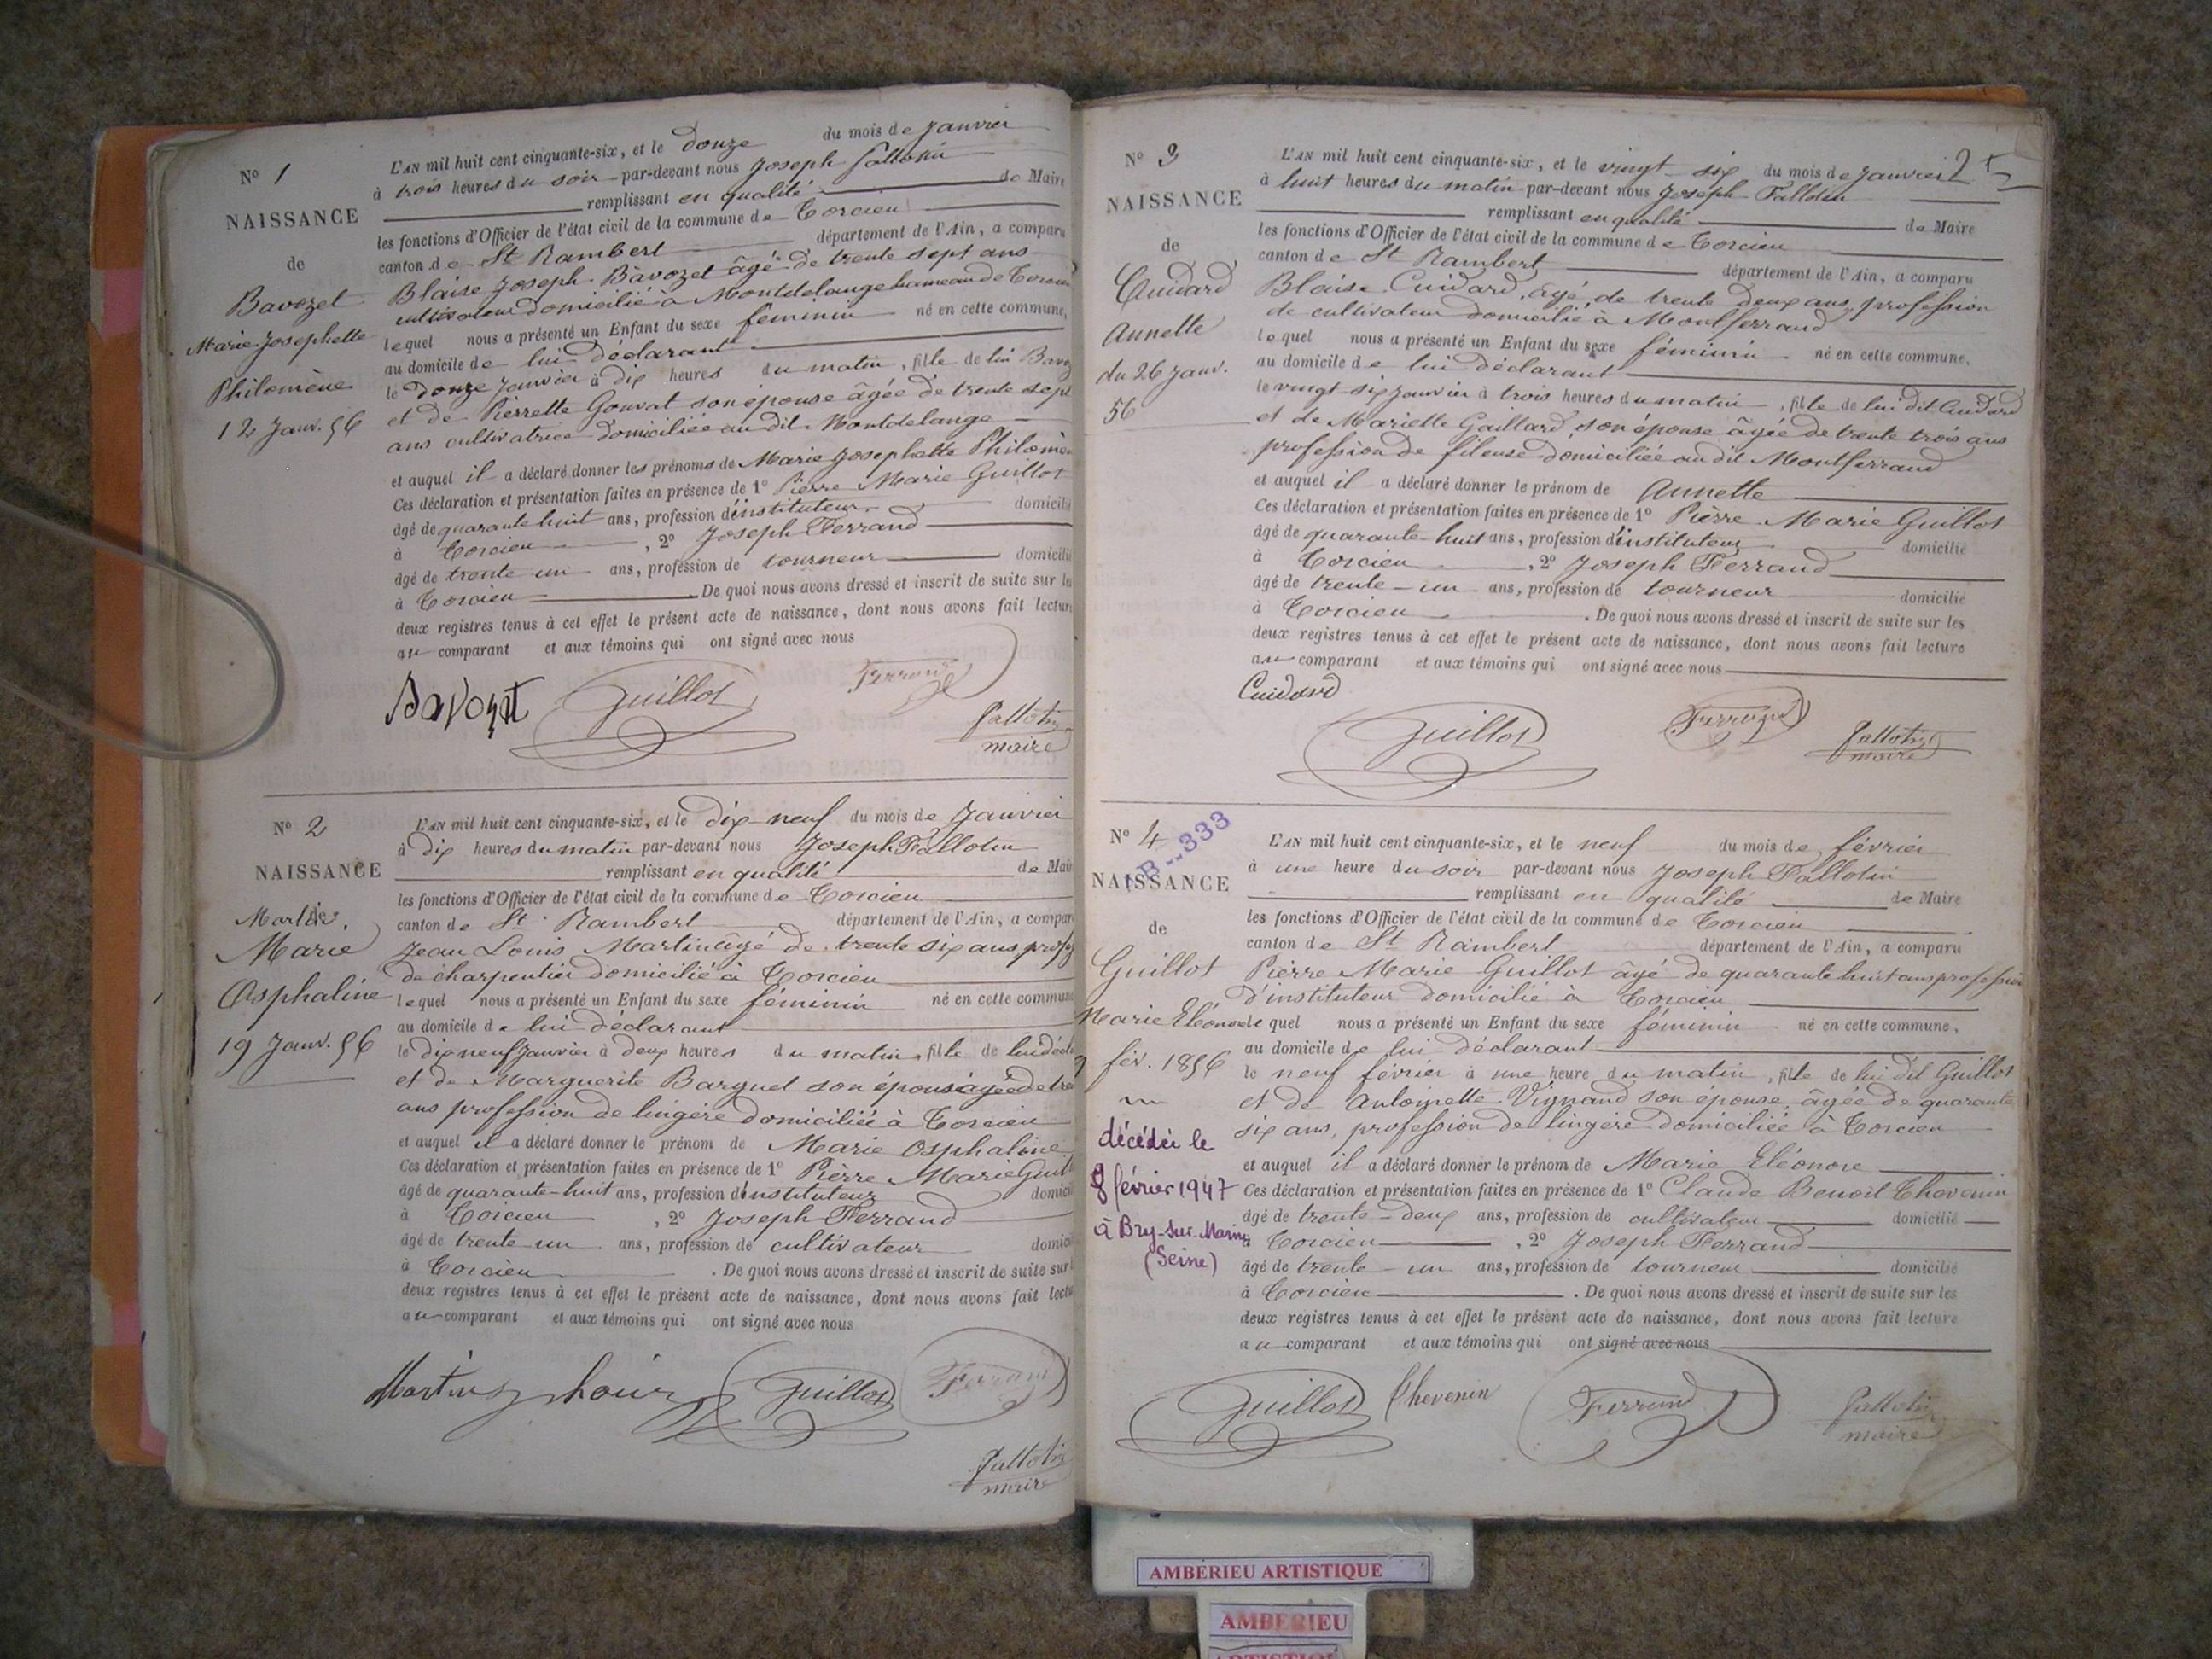 N° 1
NAISSANCE
de
Bavozet
Marie Josephette
Philomène
12 Janv. 56
L'AN mil huit cent cinquante-six, et le douze du mois de Janvier
à trois heures du soir par-devant nous Joseph Fallotin
remplissant en qualité de Maire
les fonctions d'Officier de l'état civil de la commune de Torcieu
canton de St Rambert département de l'Ain, a comparu
Blaise Joseph Bavozet âgé de trente sept ans
cultivateur domicilié à Montdelange hameau de
lequel nous a présenté un Enfant du sexe féminin né en cette commune,
au domicile de lui déclarant
le douze Janvier à dix heures du matin, fille de lui
et de Pierrette Gonvat son épouse âgée de trente sept
ans cultivatrice domiciliée au dit Montdelange
et auquel il a déclaré donner les prénoms de Marie Josephette
Ces déclaration et présentation faites en présence de 1° Pierre Marie Guillot
âgé de quarante huit ans, profession d'instituteur domicilié
à Torcieu, 2° Joseph Ferrand
âgé de trente un ans, profession de tourneur domicilié
à Torcieu. De quoi nous avons dressé et inscrit de suite sur les
deux registres tenus à cet effet le présent acte de naissance, dont nous avons fait lecture
au comparant et aux témoins qui ont signé avec nous
Bavozet Guillot Ferrand
Fallotin
maire
N° 2
NAISSANCE
de
Martin.
Marie
Osphaline
19 Janv. 56
L'AN mil huit cent cinquante-six, et le dix-neuf du mois de Janvier
à dix heures du matin par-devant nous Joseph Fallotin
remplissant en qualité de
les fonctions d'Officier de l'état civil de la commune de Torcieu
canton de St Rambert département de l'Ain, a
Jean Louis Martin âgé de trente six ans
de charpentier domicilié à Torcieu
lequel nous a présenté un Enfant du sexe féminin né en cette commune
au domicile de lui déclarant
le dix neuf Janvier à deux heures du matin, fille de lui
et de Marguerite Barquet son épouse âgée de
ans profession de lingère domiciliée à Torcieu
et auquel il a déclaré donner le prénom de Marie Osphaline
Ces déclaration et présentation faites en présence de 1° Pierre Marie
âgé de quarante-huit ans, profession d'instituteur
à Torcieu, 2° Joseph Ferrand
âgé de trente un ans, profession de cultivateur
à Torcieu. De quoi nous avons dressé et inscrit de suite sur
deux registres tenus à cet effet le présent acte de naissance, dont nous avons fait
au comparant et aux témoins qui ont signé avec nous
Martin Guillot Ferrand
Fallotin
maire
2
N° 3
NAISSANCE
de
Cuidard
Annette
du 26 Janv.
56
L'AN mil huit cent cinquante-six, et le vingt-six du mois de Janvier
à huit heures du matin par-devant nous Joseph Fallotin
remplissant en qualité de Maire
les fonctions d'Officier de l'état civil de la commune de Torcieu
canton de St Rambert département de l'Ain, a comparu
Blaise Cuidard, âgé de trente deux ans, profession
de cultivateur domicilié à Montferrand
lequel nous a présenté un Enfant du sexe féminin né en cette commune.
au domicile de lui déclarant
le vingt six Janvier à trois heures du matin, fille de lui dit Cuidard
et de Mariette Gaillard, son épouse âgée de trente trois ans
profession de fileuse domiciliée au dit Montferrand
et auquel il a déclaré donner le prénom de Annette
Ces déclaration et présentation faites en présence de 1° Pierre Marie Guillot
âgé de quarante-huit ans, profession d'instituteur domicilié
à Torcieu, 2° Joseph Ferrand
âgé de trente-un ans, profession de tourneur domicilié
à Torcieu. De quoi nous avons dressé et inscrit de suite sur les
deux registres tenus à cet effet le présent acte de naissance, dont nous avons fait lecture
au comparant et aux témoins qui ont signé avec nous
Cuidard
Guillot Ferrand Fallotin
maire
N° 4
B--333
NAISSANCE
de
Guillot
Marie Eléonore
9 fév. 1856
décédée le
8 février 1947
à Bry-sur-Marne
(Seine)
L'AN mil huit cent cinquante-six, et le neuf du mois de février
à une heure du soir par-devant nous Joseph Fallotin
remplissant en qualité de Maire
les fonctions d'Officier de l'état civil de la commune de Torcieu
canton de St Rambert département de l'Ain, a comparu
Pierre Marie Guillot âgé de quarante huit ans profession
d'instituteur domicilié à Torcieu
lequel nous a présenté un Enfant du sexe féminin né en cette commune,
au domicile de lui déclarant
le neuf février à une heure du matin, fille de lui dit Guillot
et de Antoinette Vignand son épouse âgée de quarante
six ans, profession de lingère domiciliée à Torcieu
et auquel il a déclaré donner le prénom de Marie Eléonore
Ces déclaration et présentation faites en présence de 1° Claude Benoit Thevenin
âgé de trente-deux ans, profession de cultivateur domicilié
à Torcieu, 2° Joseph Ferrand
âgé de trente-un ans, profession de tourneur domicilié
à Torcieu. De quoi nous avons dressé et inscrit de suite sur les
deux registres tenus à cet effet le présent acte de naissance, dont nous avons fait lecture
au comparant et aux témoins qui ont signé avec nous
Guillot Thevenin Ferrand Fallotin
maire
AMBERIEU ARTISTIQUE
AMBERIEU
ARTISTIQUE